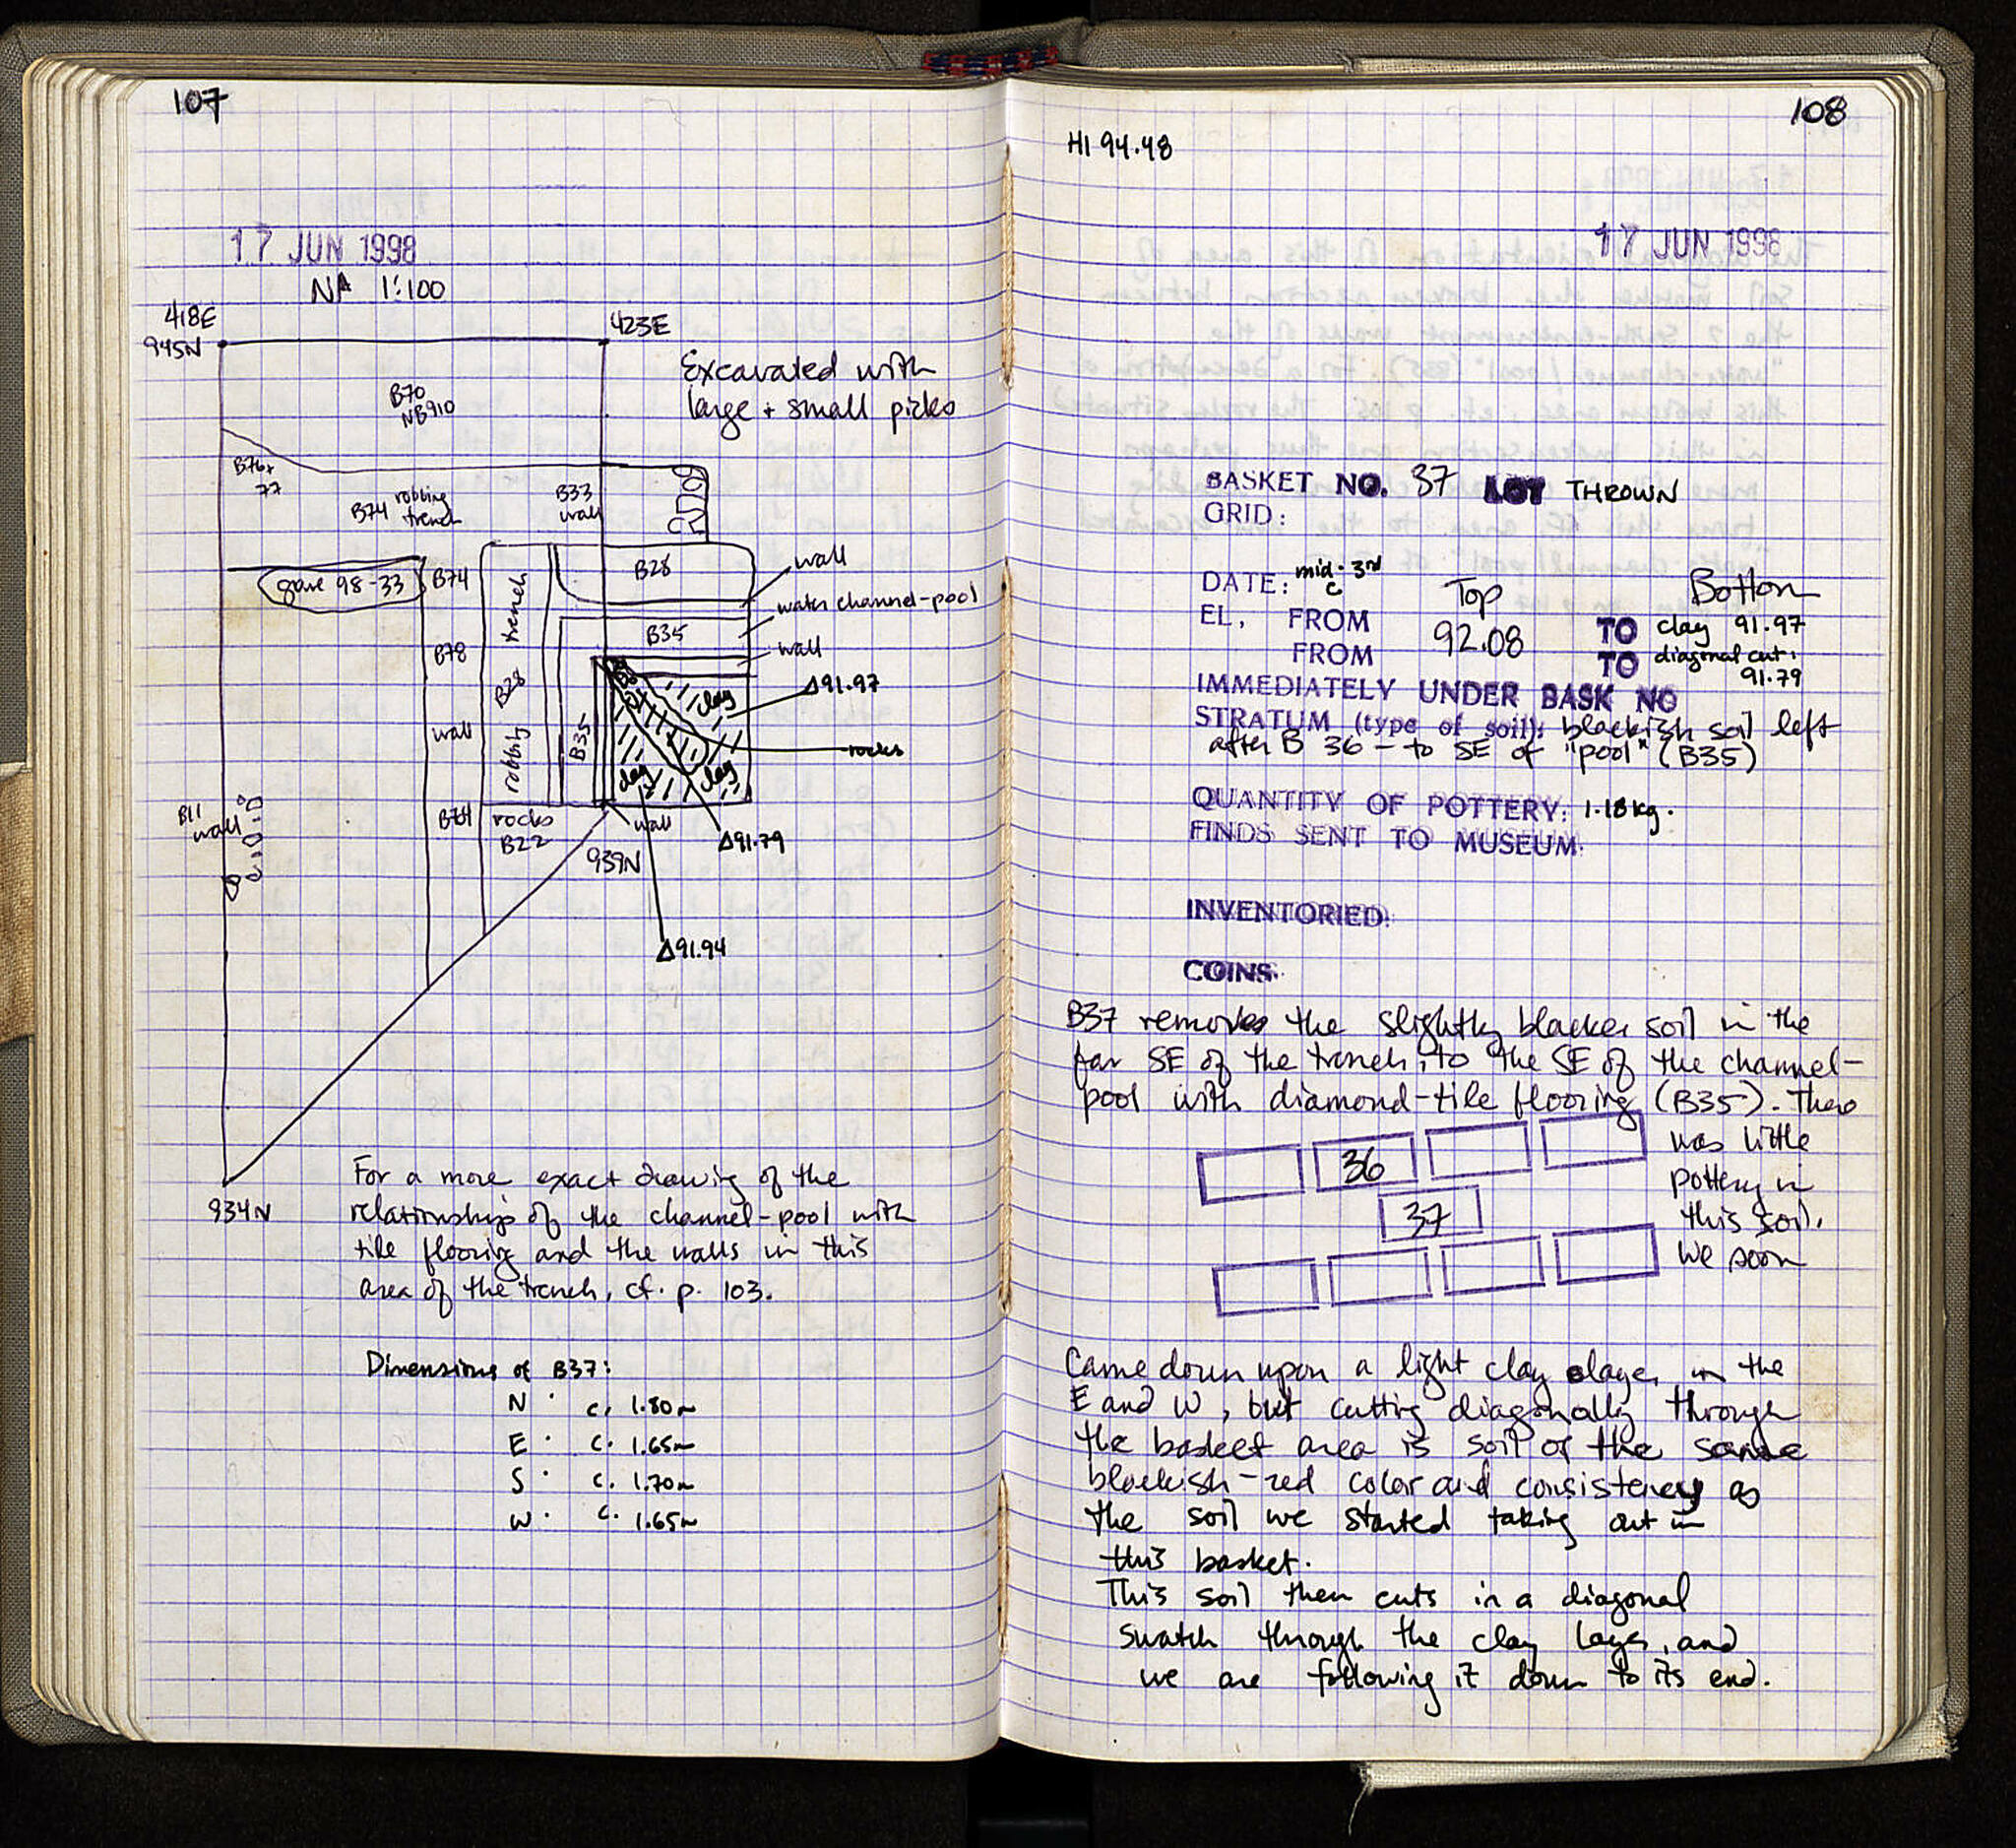 107
17 JUN 1998
NA 1:100
418E
945N
423E
Excavated with
large + small picks
B70
NB910
B76+
77
B74 robbing
trench
B33
wall
grave 98-33
B74
trench
B28
wall
water channel-pool
B35
wall
B78
B28
clay
Δ91.97
wall
robbing
B35
rocks
clay
clay
B11
wall
rocks
B22
wall
Δ91.79
939N
Δ91.94
934N
For a more exact drawing of the
relationships of the channel-pool with
tile flooring and the walls in this
area of the trench, cf. p. 103.
Dimensions of B37:
N · c. 1.80m
E · c. 1.65m
S · c. 1.70m
W · c. 1.65m
108
HI 94.48
17 JUN 1998
BASKET NO. 37 LOT THROWN
GRID:
DATE: mid-3rd c
Top Bottom
EL. FROM 92.08 TO clay 91.97
FROM TO diagonal cut:
91.79
IMMEDIATELY UNDER BASK NO
STRATUM (type of soil): blackish soil left
after B 36 - to SE of "pool" (B35)
QUANTITY OF POTTERY: 1.18kg.
FINDS SENT TO MUSEUM:
INVENTORIED:
COINS:
B37 removes the slightly blacker soil in the
far SE of the trench, to the SE of the channel-
pool with diamond-tile flooring (B35). There
was little
36
pottery in
37
this soil.
We soon
came down upon a light clay layer in the
E and W, but cutting diagonally through
the basket area is soil of the same
blackish-red color and consistency as
the soil we started taking out in
this basket.
This soil then cuts in a diagonal
swatch through the clay layer, and
we are following it down to its end.